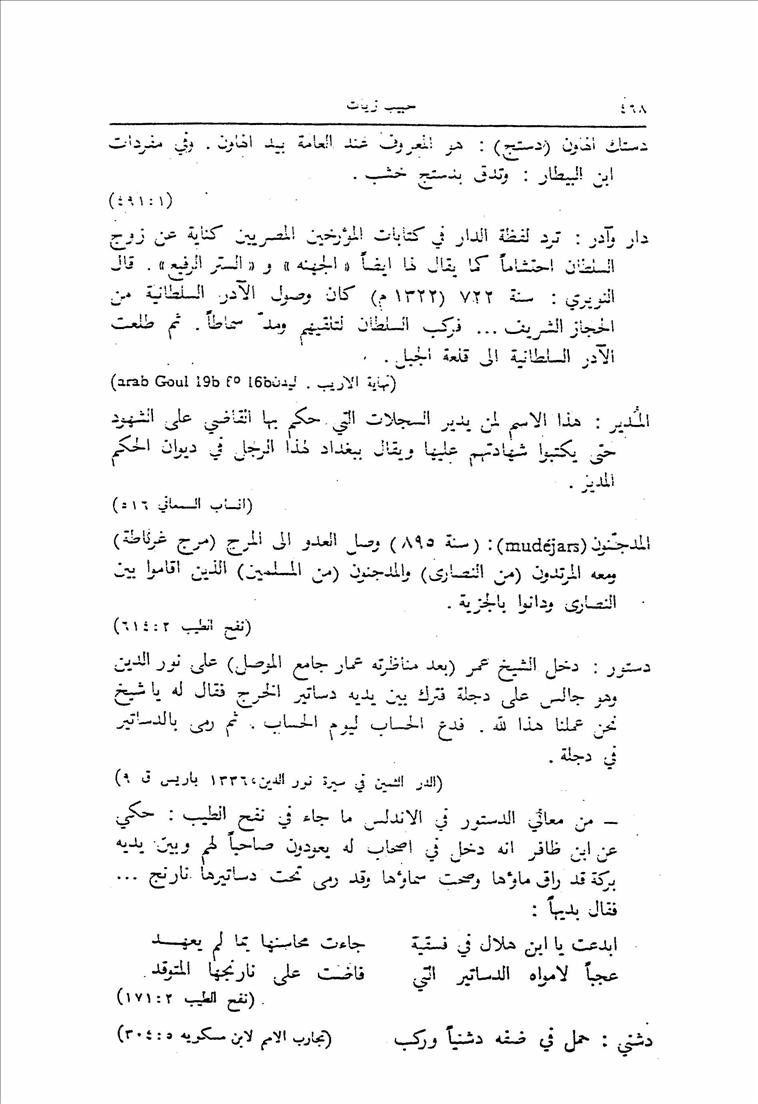 ٤٦٨ حبيب زيات
دستك الهاون (دستج) : هو المعروف عند العامة بيد الهاون . وفي مفردات
ابن البيطار : وتدق بدستج خشب .
(٤٩١:١)
دار وآدر : ترد لفظة الدار في كتابات المؤرخين المصريين كناية عن زوج
السلطان احتشاماً كما يقال لها ايضاً « الجهنه » و « الستر الرفيع » . قال
النويري : سنة ٧٢٢ (١٣٢٢ م) كان وصول الآدر السلطانية من
الحجاز الشريف ... فركب السلطان لتلقيهم ومدّ سماطاً . ثم طلعت
الآدر السلطانية الى قلعة الجبل .
(نهاية الاريب . ليدن arab Goul 19b f° 16b)
المُدير : هذا الاسم لمن يدير السجلات التي حكم بها القاضي على الشهود
حتى يكتبوا شهادتهم عليها ويقال ببغداد لهذا الرجل في ديوان الحكم
المدير .
(انساب السمعاني ٥١٦)
المدجّنون (mudéjars) : (سنة ٨٩٥) وصل العدو الى المرج (مرج غرناطة)
ومعه المرتدون (من النصارى) والمدجنون (من المسلمين) الذين اقاموا بين
النصارى ودانوا بالجزية .
(نفح الطيب ٦١٤:٢)
دستور : دخل الشيخ عمر (بعد مناظرته عمار جامع الموصل) على نور الدين
وهو جالس على دجلة فترك بين يديه دساتير الخرج فقال له يا شيخ
نحن عملنا هذا لله . فدع الحساب ليوم الحساب . ثم رمى بالدساتير
في دجلة .
(الدر الثمين في سيرة نور الدين، ١٣٣٦ باريس ق ٩)
— من معاني الدستور في الاندلس ما جاء في نفح الطيب : حكي
عن ابن ظافر انه دخل في اصحاب له يعودون صاحباً لهم وبين يديه
بركة قد راق ماؤها وصحت سماؤها وقد رمى تحت دساتيرها نارنج ...
فقال بديهاً :
ابدعت يا ابن هلال في فسقية جاءت محاسنها بما لم يعهـد
عجباً لامواه الدساتير التي فاضت على نارنجها المتوقد
(نفح الطيب ١٧١:٢)
دشتي : حمل في ضفه دشنياً وركب (تجارب الامم لابن مسكويه ٣٠٤:٥)